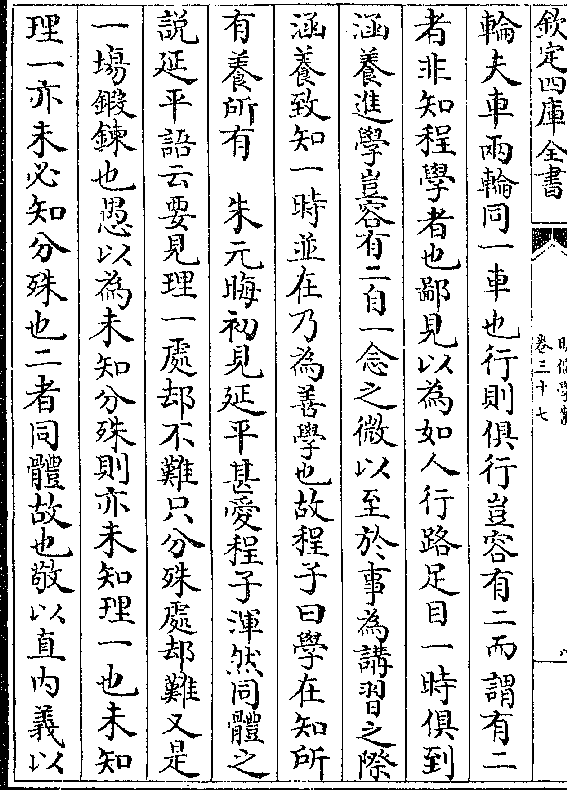 欽定四庫全書
明儒學案
卷三十七
輪夫車兩輪同一車也行則俱行豈容有二而謂有二
者非知程學者也鄙見以為如人行路足目一時俱到
涵養進學豈容有二自一念之微以至於事為講習之際
涵養致知一時並在乃為善學也故程子曰學在知所
有養所有　朱元晦初見延平甚愛程子渾然同體之
説延平語云要見理一處却不難只分殊處却難又是
一場鍛鍊也愚以為未知分殊則亦未知理一也未知
理一亦未必知分殊也二者同體故也敬以直内義以